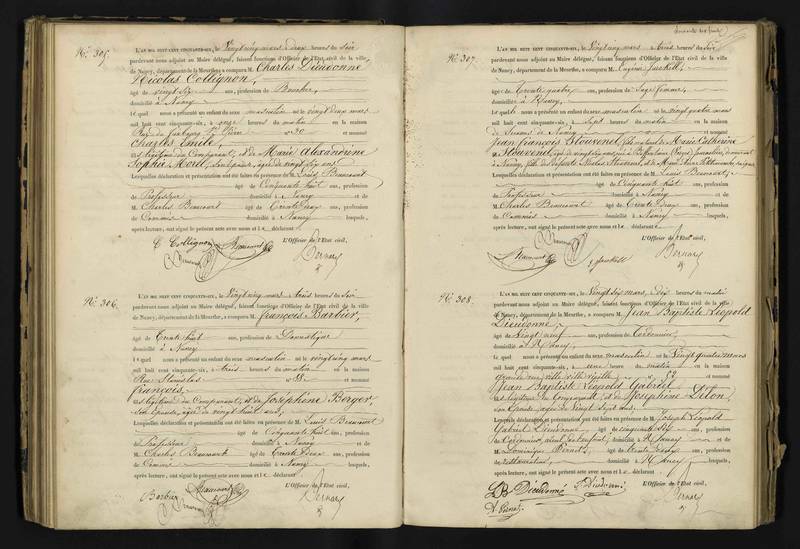 N.° 305.
L'AN MIL HUIT CENT CINQUANTE-SIX, le Vingt cinq mars deux heures du Soir
pardevant nous adjoint au Maire délégué, faisant fonctions d'Officier de l'Etat civil de la ville
de Nancy, département de la Meurthe, a comparu M. Charles Dieudonné
Nicolas Collignon,
âgé de vingt six ans, profession de
domicilié à Nancy
lequel nous a présenté un enfant du sexe masculin né le vingt deux mars
mil huit cent cinquante-six, à onze heures du matin en la maison
Rue du faubourg St Pierre N° 30 et nommé
Charles Emile,
fils légitime du Comparant, et de Marie Alexandrine
Sophie Morel, son épouse, âgée de vingt six ans
Lesquelles déclaration et présentation ont été faites en présence de M. Louis Beaucourt
âgé de Cinquante huit ans, profession
de Professeur domicilié à Nancy et de
M. Charles Beaucourt âgé de Trente deux ans, profession
de Commis domicilié à Nancy lesquels,
après lecture, ont signé le présent acte avec nous et le déclarant
C Collignon Beaucourt L'Officier de l'Etat civil,
Bernard
N.° 306.
L'AN MIL HUIT CENT CINQUANTE-SIX, le Vingt cinq mars trois heures du Soir
pardevant nous adjoint au Maire délégué, faisant fonctions d'Officier de l'Etat civil de la ville
de Nancy, département de la Meurthe, a comparu M. françois Barbier,
âgé de Trente huit ans, profession de Domestique
domicilié à Nancy
lequel nous a présenté un enfant du sexe masculin né le vingt cinq mars
mil huit cent cinquante-six, à trois heures du matin en la maison
Rue Stanislas N° 38 et nommé
françois
fils légitime du Comparant, et de Joséphine Berger,
son épouse, âgée de vingt huit ans,
Lesquelles déclaration et présentation ont été faites en présence de M. Louis Beaucourt
âgé de Cinquante huit ans, profession
de Professeur domicilié à Nancy et de
M. Charles Beaucourt âgé de Trente deux ans, profession
de Commis domicilié à Nancy lesquels,
après lecture, ont signé le présent acte avec nous et le déclarant
Barbier Beaucourt L'Officier de l'Etat civil,
Bernard
N.° 307.
L'AN MIL HUIT CENT CINQUANTE-SIX, le Vingt cinq mars à trois heures du Soir
pardevant nous adjoint au Maire délégué, faisant fonctions d'Officier de l'Etat civil de la ville
de Nancy, département de la Meurthe, a comparu M. Eugénie
âgée de Trente quatre ans, profession de Sage femme,
domiciliée à Nancy,
laquelle nous a présenté un enfant du sexe masculin né le vingt quatre mars
mil huit cent cinquante-six, à Sept heures du matin en la maison
de Secours de Nancy et nommé
Jean françois Thouvenel, fils naturel de Marie Catherine
Thouvenel,
Lesquelles déclaration et présentation ont été faites en présence de M. Louis Beaucourt,
âgé de Cinquante huit ans, profession
de Professeur domicilié à Nancy et de
M. Charles Beaucourt âgé de Trente deux ans, profession
de Commis domicilié à Nancy lesquels,
après lecture, ont signé le présent acte avec nous et la déclarante
L'Officier de l'Etat civil,
Beaucourt Bernard
N.° 308.
L'AN MIL HUIT CENT CINQUANTE-SIX, le Vingt six mars, dix heures du matin
pardevant nous adjoint au Maire délégué, faisant fonctions d'Officier de l'Etat civil de la ville
de Nancy, département de la Meurthe, a comparu M. Jean Baptiste Léopold
Dieudonné,
âgé de Vingt neuf ans, profession de Cordonnier,
domicilié à Nancy,
lequel nous a présenté un enfant du sexe masculin né le Vingt quatre mars
mil huit cent cinquante-six, à une heure du matin en la maison
grande rue ville vieille et nommé
Jean Baptiste Léopold Gabriel
fils légitime du Comparant et de Joséphine Delon,
son épouse, âgée de Vingt sept ans.
Lesquelles déclaration et présentation ont été faites en présence de M. Joseph Léopold
Gabriel Dieudonné âgé de cinquante six ans, profession
de Cordonnier, aïeul de l'enfant, domicilié à Nancy et de
M. Dominique Pernet, âgé de ans, profession
de domicilié à Nancy lesquels,
après lecture, ont signé le présent acte avec nous et le déclarant
L'Officier de l'Etat civil,
LB Dieudonné Dieudonné Bernard
Pernet